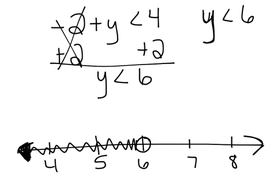 -2 + y < 4 y < 6
+2 +2
y < 6
4 5 6 7 8